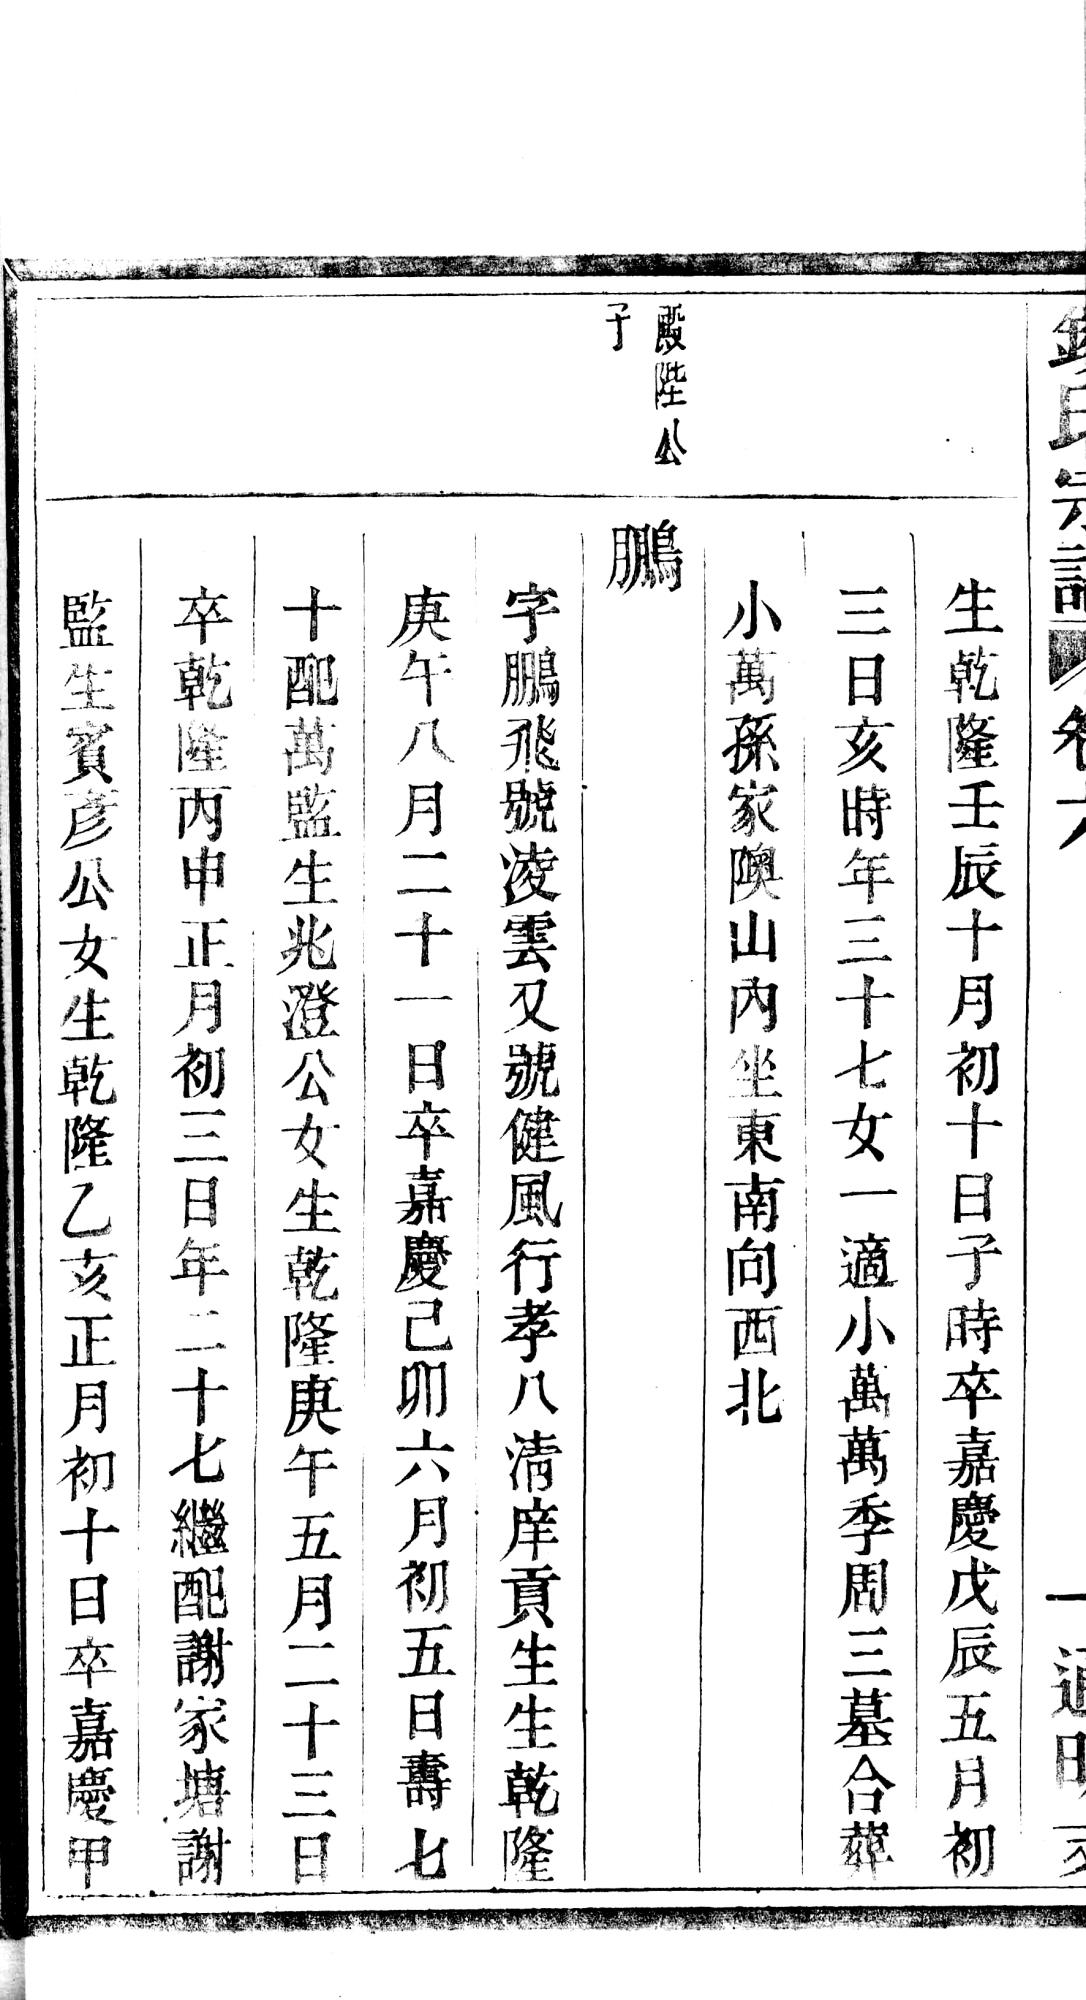 氏宗譜
卷六
一
生乾隆壬辰十月初十日子時卒嘉慶戊辰五月初
三日亥時年三十七女一適小萬萬季周三墓合葬
小萬孫家隩山內坐東南向西北
殿陛公
子
鵬
字鵬飛號凌雲又號健風行孝八清庠貢生生乾隆
庚午八月二十一日卒嘉慶己卯六月初五日壽七
十配萬監生兆澄公女生乾隆庚午五月二十三日
卒乾隆丙申正月初三日年二十七繼配謝家塘謝
監生賓彥公女生乾隆乙亥正月初十日卒嘉慶甲